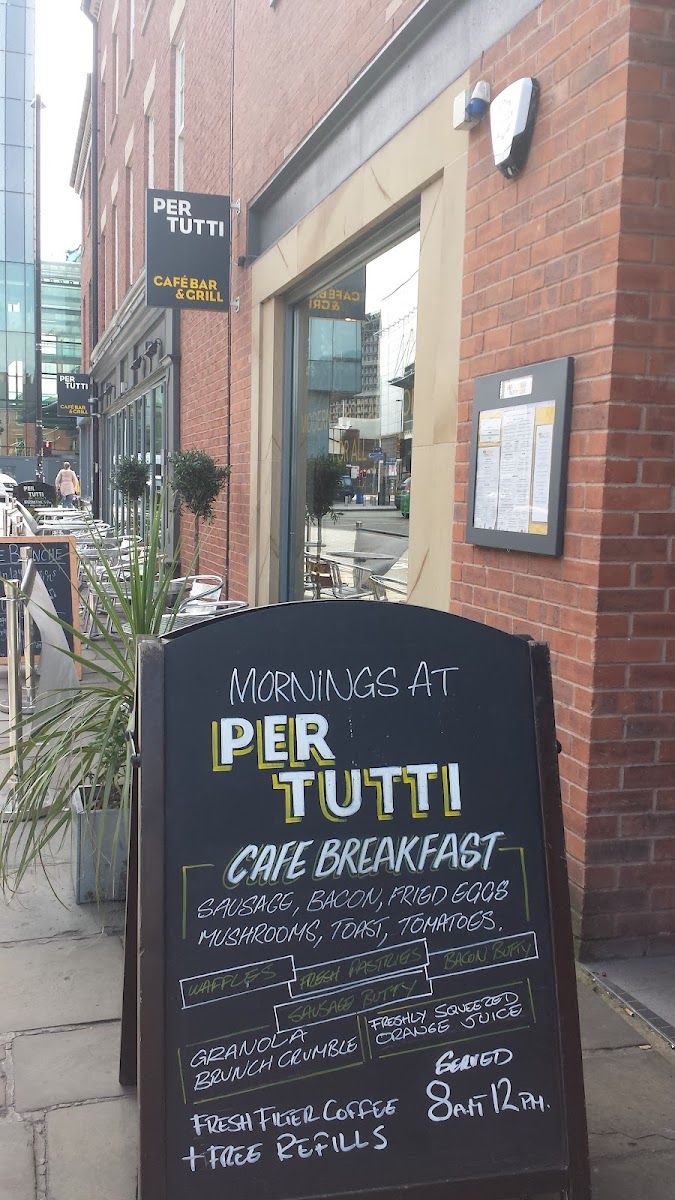 PER
TUTTI
CAFÉ BAR
& GRILL
PER
TUTTI
CAFÉ BAR
& GRILL
MORNINGS AT
PER
TUTTI
CAFE BREAKFAST
SAUSAGE, BACON, FRIED EGGS
MUSHROOMS, TOAST, TOMATOES.
WAFFLES
FRESH PASTRIES
BACON BUTTY
SAUSAGE BUTTY
GRANOLA
BRUNCH CRUMBLE
FRESHLY SQUEEZED
ORANGE JUICE
FRESH FILTER COFFEE
+ FREE REFILLS
SERVED
8AM 12PM.